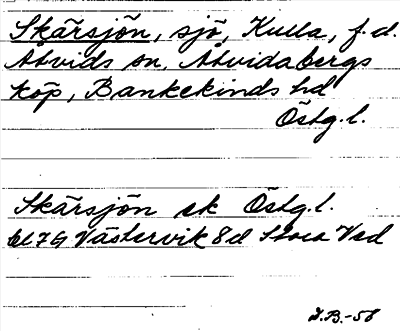 Skärsjön, sjö, Kulla, f.d.
Åtvids sn, Åtvidabergs
köp, Bankekinds hd
Östg.l.
Skärsjön ek Östg.l.
bl 7G Västervik 8d Stora Ved
J.B.-58